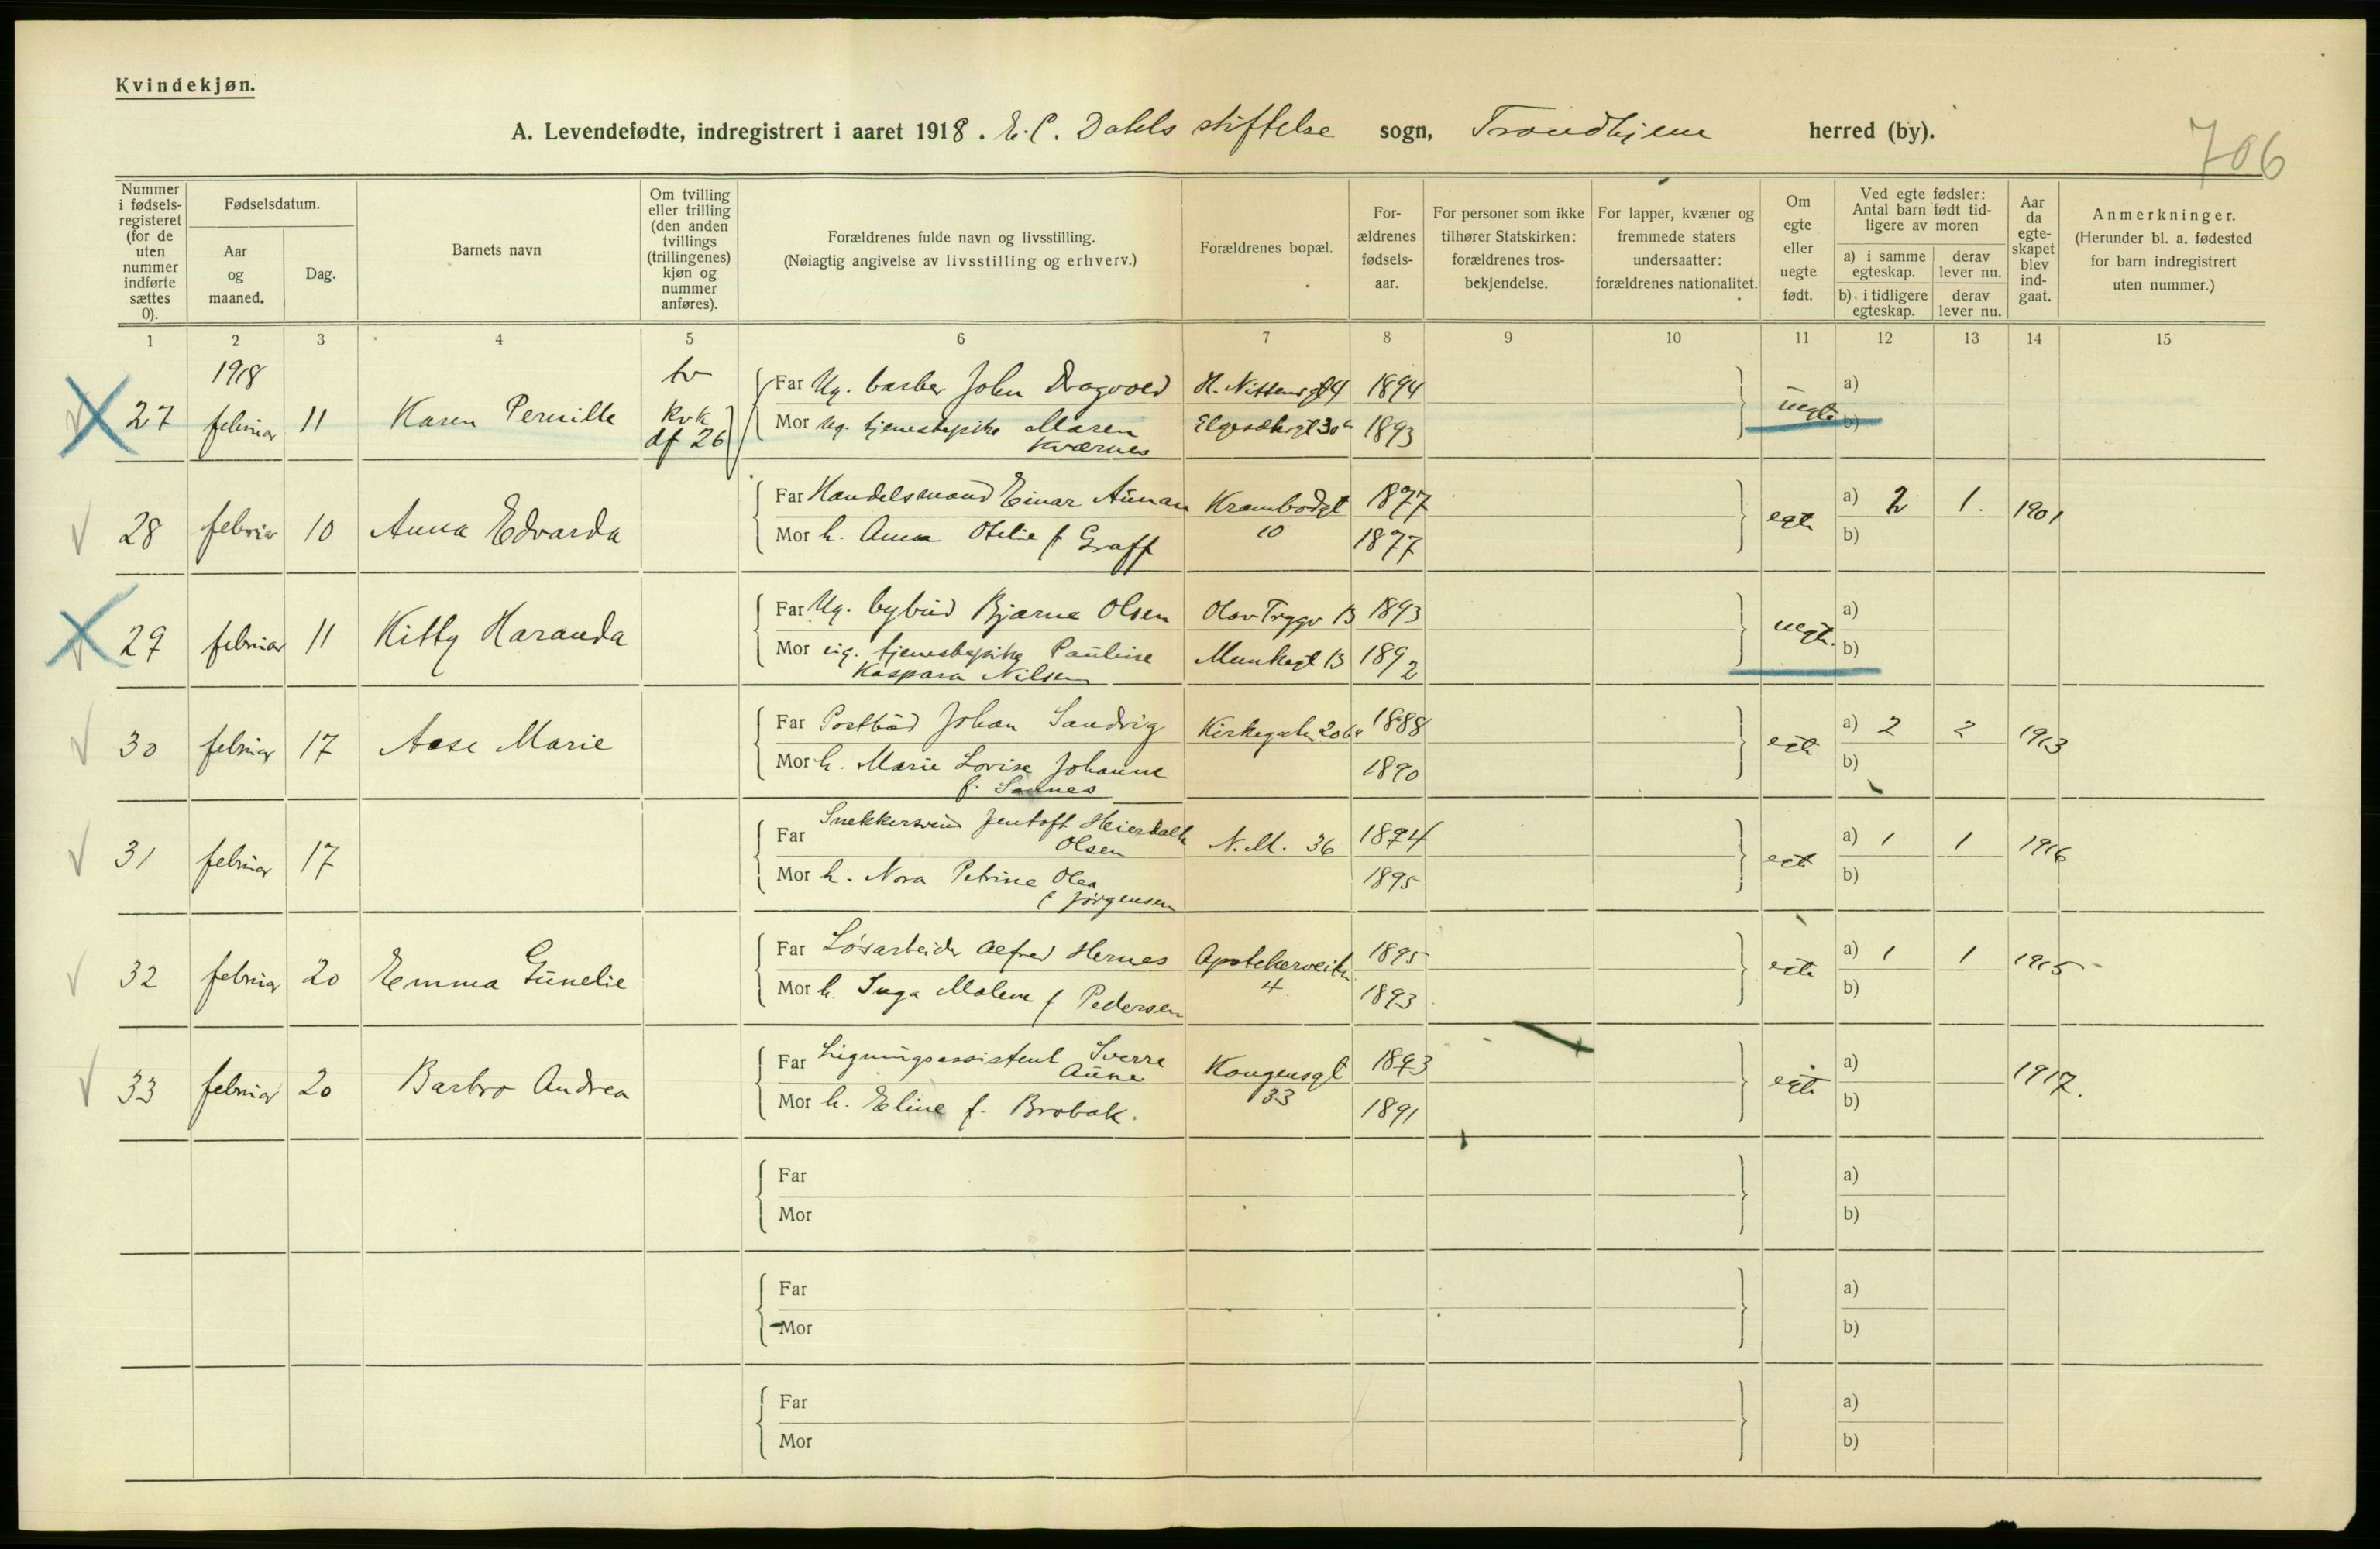 Kvindekjøn.
A. Levendefødte, indregistrert i aaret 1918. E. C. Dahls stiftelse sogn, Trondhjem herred (by).
706
Nummer i fødsels-registeret (for de uten nummer indførte sættes 0).
Fødselsdatum.
Aar og maaned.
Dag.
Barnets navn
Om tvilling eller trilling (den anden tvillings (trillingenes) kjøn og nummer anføres).
Forældrenes fulde navn og livsstilling.
(Nøiagtig angivelse av livsstilling og erhverv.)
Forældrenes bopæl.
For-ældrenes fødsels-aar.
For personer som ikke tilhører Statskirken: forældrenes tros-bekjendelse.
For lapper, kvæner og fremmede staters undersaatter: forældrenes nationalitet.
Om egte eller uegte født.
Ved egte fødsler: Antal barn født tid-ligere av moren
a) i samme egteskap.
derav lever nu.
b) i tidligere egteskap.
derav lever nu.
Aar da egte-skapet blev ind-gaat.
Anmerkninger.
(Herunder bl. a. fødested for barn indregistrert uten nummer.)
1 2 3 4 5 6 7 8 9 10 11 12 13 14 15
1918
27 februar 11 Karen Pernille tv kvk af 26
Far Ug. barber John Dragvold 1894
Mor ug. tjenestepike Maren Kværnes 30a 1893
uegte a) b)
28 februar 10 Anna Edvarda
Far Handelsmand Einar Aunan Krambodgt 10 1877
Mor h. Anna Otelie f Graff 1877
egte a) 2 1. 1901
b)
29 februar 11 Kitty Haranda
Far Ug. bybud Bjarne Olsen Olav Trygv 13 1893
Mor ug. tjenestepike Pauline Kaspara Nilsen Munkegt 13 1892
uegte. a) b)
30 februar 17 Aase Marie
Far Postbud Johan Sandvig Kirkegaten 1888
Mor h. Marie Lovise Johanne f. Sannes 1890
egte a) 2 2 1913
b)
31 februar 17
Far Snekkersvend Jentoft Heierdahl Olsen N.M. 36 1894
Mor h. Nora Petrine Olea f Jørgensen 1895
egte a) 1 1 1916
b)
32 februar 20 Emma Gunelie
Far Løsarbeider Alfred Hernes Apotekerveiten 4 1895
Mor h. Inga Malene f Pedersen 1893
egte a) 1 1 1915
b)
33 februar 20 Barbro Andrea
Far Ligningsassistent Sverre Aune Kongensgt 33 1893
Mor h. Eline f. Brobak. 1891
egte a) 1917.
b)
Far a)
Mor b)
Far a)
Mor b)
Far a)
Mor b)